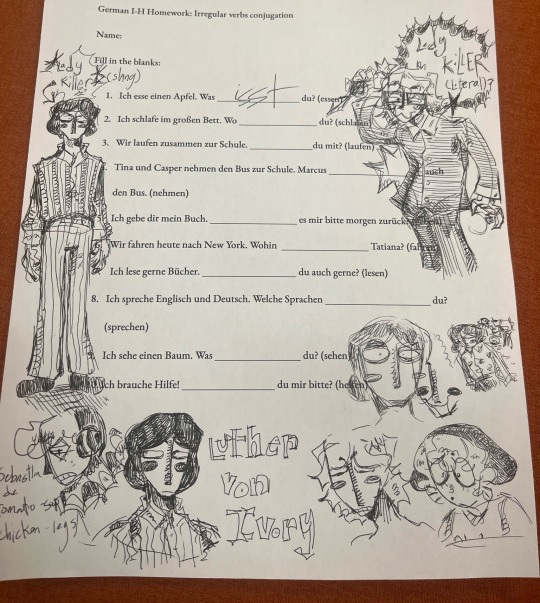 German I-H Homework: Irregular verbs conjugation
Name:
Lady
Killer
(slang)
Lady
KiLLER
(Literal)?
Fill in the blanks:
1. Ich esse einen Apfel. Was isst du? (essen)
2. Ich schlafe im großen Bett. Wo ____ du? (schlafen)
3. Wir laufen zusammen zur Schule. ____ du mit? (laufen)
Tina und Casper nehmen den Bus zur Schule. Marcus ____ auch
den Bus. (nehmen)
Ich gebe dir mein Buch. ____ es mir bitte morgen zurück.
Wir fahren heute nach New York. Wohin ____ Tatiana?
Ich lese gerne Bücher. ____ du auch gerne? (lesen)
8. Ich spreche Englisch und Deutsch. Welche Sprachen ____ du?
(sprechen)
Ich sehe einen Baum. Was ____ du? (sehen)
Ich brauche Hilfe! ____ du mir bitte? (helfen)
de
chicken-legs
Luther
von
Ivory